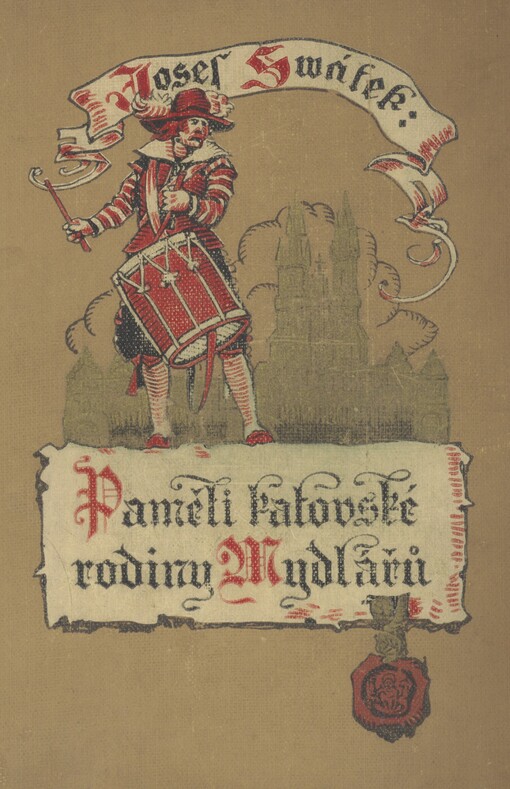 Josef Swátek:
Paměti katovské
rodiny Mydlářů